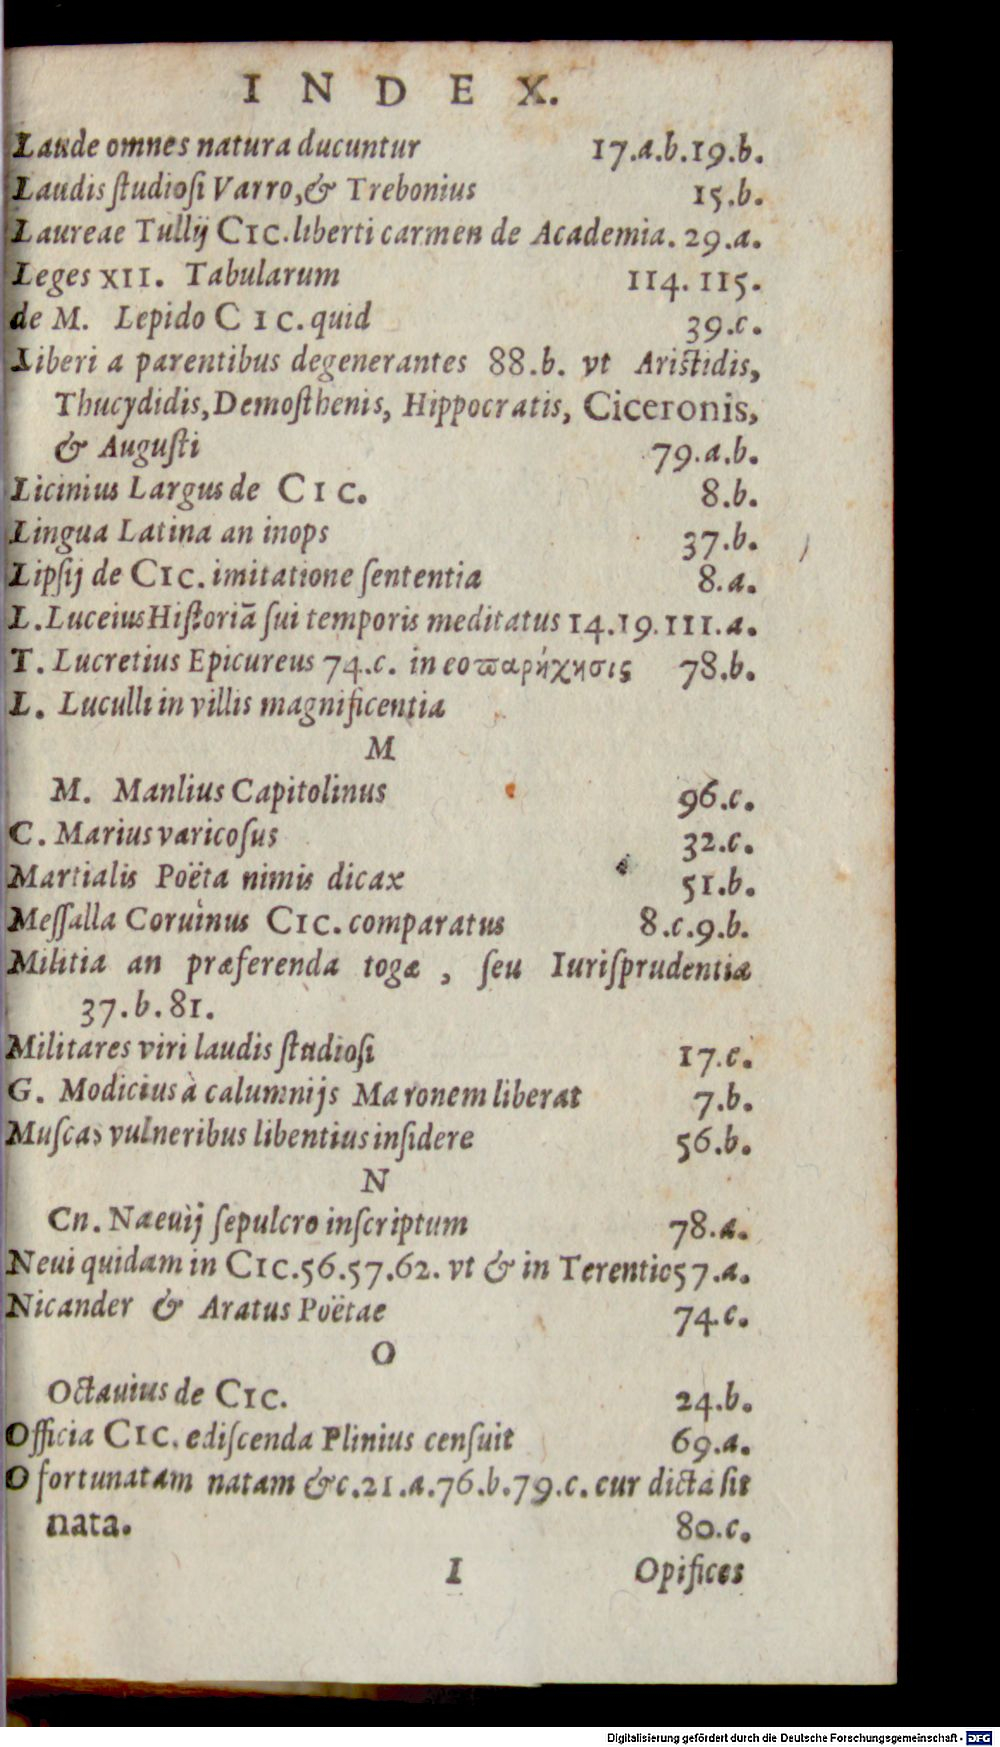 INDEX.
Laude omnes natura ducuntur 17.a.b.19.b.
Laudis ſtudioſi Varro,& Trebonius 15.b.
Laureae Tullij CIC.liberti carmen de Academia. 29.a.
Leges XII. Tabularum 114. 115.
de M. Lepido CIC. quid 39.c.
Liberi a parentibus degenerantes 88.b. vt Ariſtidis,
Thucydidis, Demoſthenis, Hippocratis, Ciceronis,
& Auguſti 79.a.b.
Licinius Largus de CIC. 8.b.
Lingua Latina an inops 37.b.
Lipſij de CIC. imitatione ſententia 8.a.
L. Luceius Hiſtoriā ſui temporis meditatus 14.19.111.a.
T. Lucretius Epicureus 74.c. in eo ϖαρήχησις 78.b.
L. Luculli in villis magnificentia
M
M. Manlius Capitolinus 96.c.
C. Marius varicoſus 32.c.
Martialis Poëta nimis dicax 51.b.
Meſſalla Coruinus CIC. comparatus 8.c.9.b.
Militia an præferenda togæ , ſeu Iuriſprudentiæ
37.b.81.
Militares viri laudis ſtudioſi 17.c.
G. Modicius à calumnijs Maronem liberat 7.b.
Muſcas vulneribus libentius inſidere 56.b.
N
Cn. Naeuij ſepulcro inſcriptum 78.a.
Neui quidam in CIC.56.57.62. vt & in Terentio 57.a.
Nicander & Aratus Poëtae 74.c.
O
Octauius de CIC. 24.b.
Officia CIC. ediſcenda Plinius cenſuit 69.a.
O fortunatam natam &c.21.a.76.b.79.c. cur dicta ſit
nata. 80.c.
I Opifices
Digitalisierung gefördert durch die Deutsche Forschungsgemeinschaft - DFG